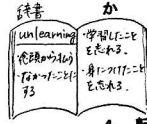 辞書
か
unlearning
・念頭から払う
・なかったことに
する
・学習したこと
を忘れる.
・身につけたこと
を忘れる.